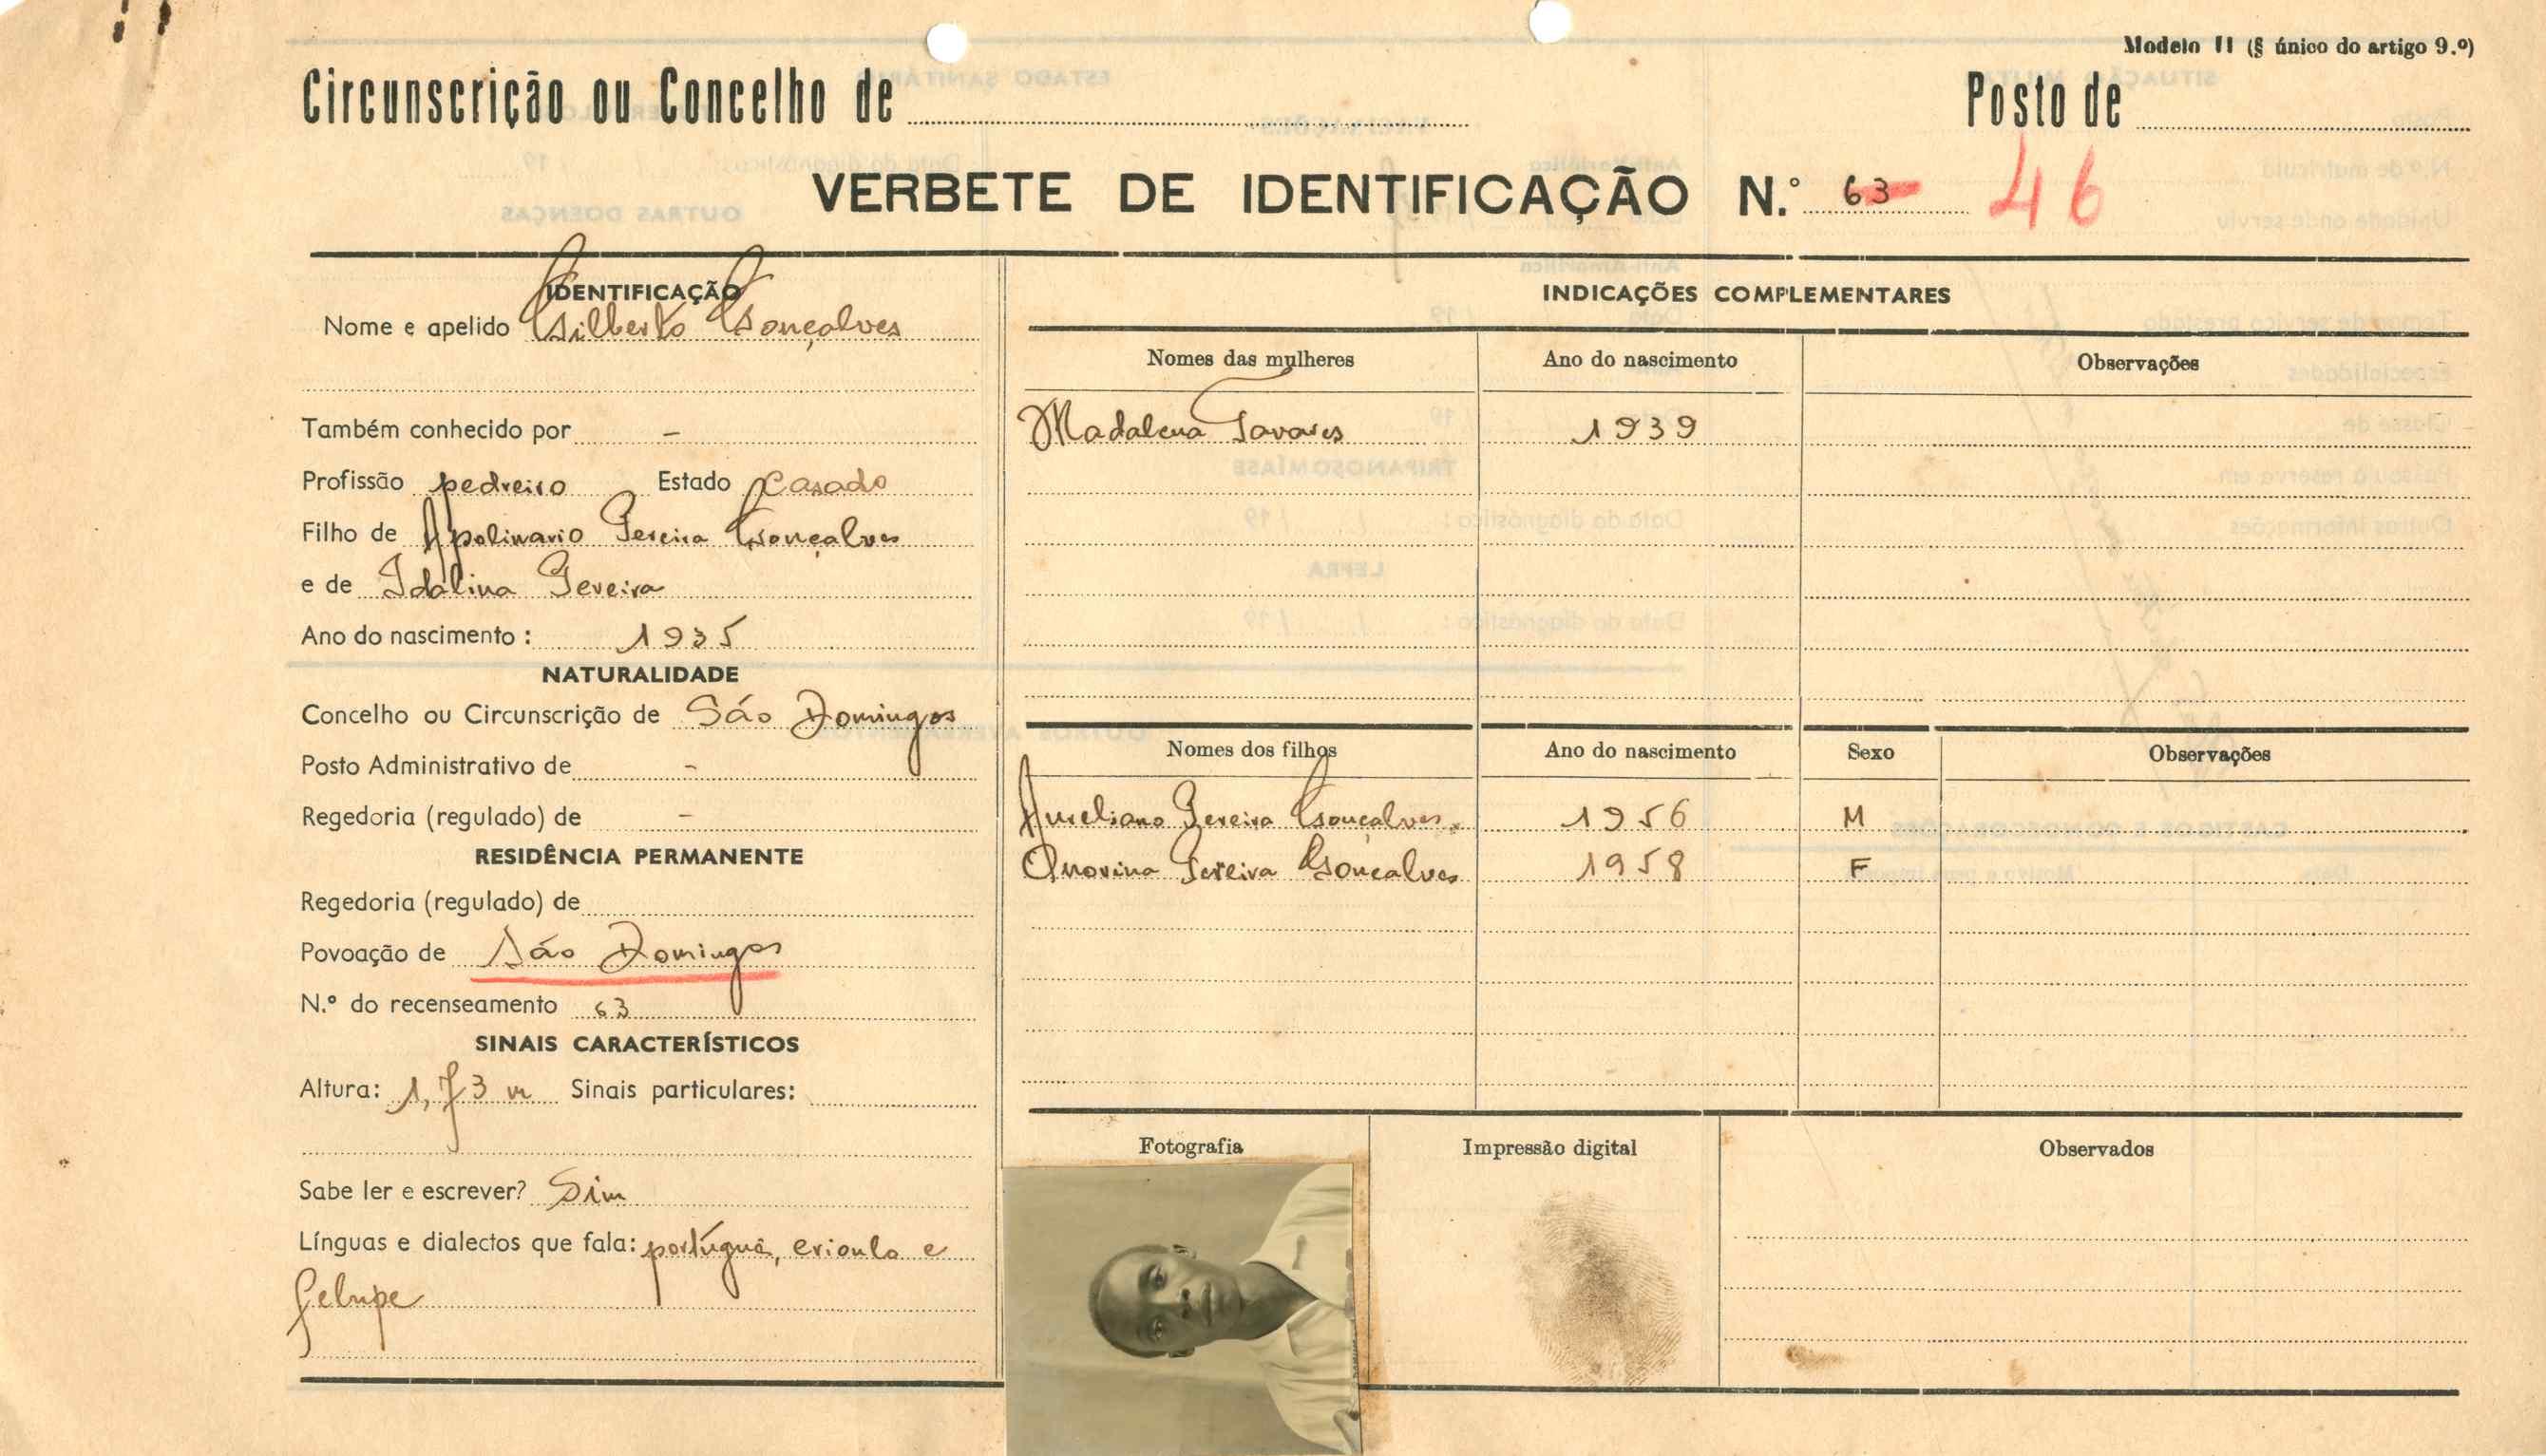 Modelo II (§ único do artigo 9.º)
Circunscrição ou Concelho de
Posto de
VERBETE DE IDENTIFICAÇÃO N.º 63 46
IDENTIFICAÇÃO
Nome e apelido Gilberto Gonçalves
Também conhecido por -
Profissão pedreiro Estado Casado
Filho de Apolinario Pereira Gonçalves
e de Idalina Pereira
Ano do nascimento: 1935
NATURALIDADE
Concelho ou Circunscrição de São Domingos
Posto Administrativo de -
Regedoria (regulado) de -
RESIDÊNCIA PERMANENTE
Regedoria (regulado) de
Povoação de São Domingos
N.º do recenseamento 63
SINAIS CARACTERÍSTICOS
Altura: 1,73 m Sinais particulares:
Sabe ler e escrever? Sim
Línguas e dialectos que fala: portuguê, crioulo e
felupe
INDICAÇÕES COMPLEMENTARES
Nomes das mulheres Ano do nascimento Observações
Madalena Tavares 1939
Nomes dos filhos Ano do nascimento Sexo Observações
Aureliano Pereira Gonçalves 1956 M
Pereira Gonçalves 1958 F
Fotografia Impressão digital Observados